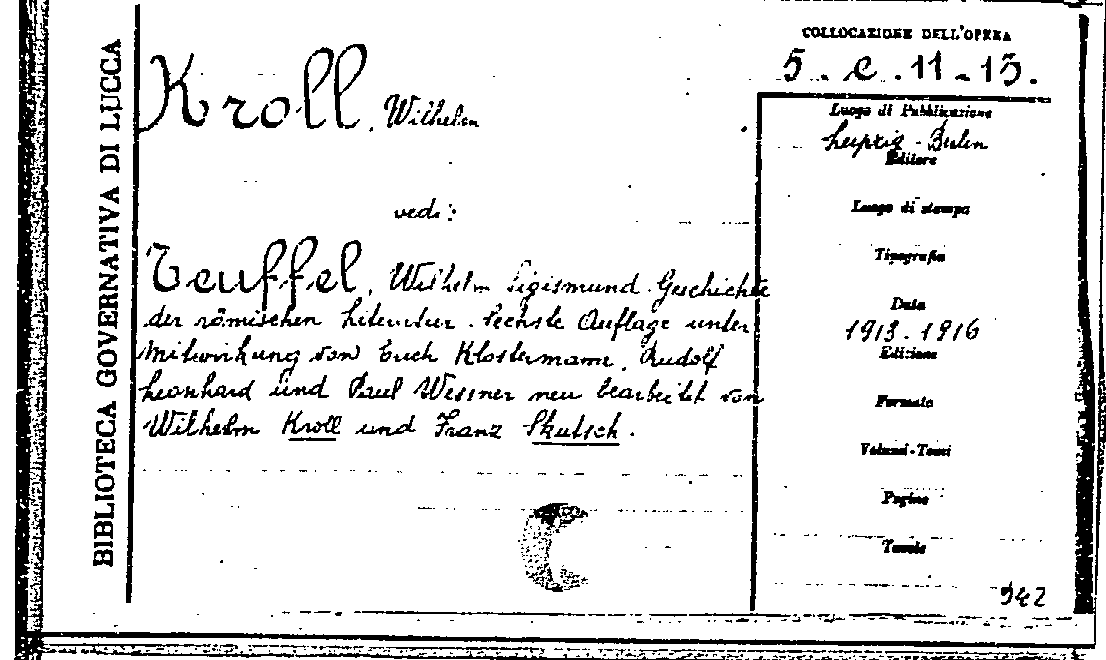 BIBLIOTECA GOVERNATIVA DI LUCCA
Kroll, Wilhelm
vedi:
Teuffel, Wilhelm Sigismund. Geschichte
der römischen Literatur. Sechste Auflage unter
Mitwirkung von Erich Klostermann, Rudolf
Leonhard und Paul Wessner neu bearbeitet von
Wilhelm Kroll und Franz Skutsch.
COLLOCAZIONE DELL'OPERA
5. c. 11-13.
Luogo di Pubblicazione
Leipzig - Berlin
Editore
Luogo di stampa
Tipografia
Data
1913. 1916
Edizione
Formato
Volumi-Tomi
Pagine
Tavole
942